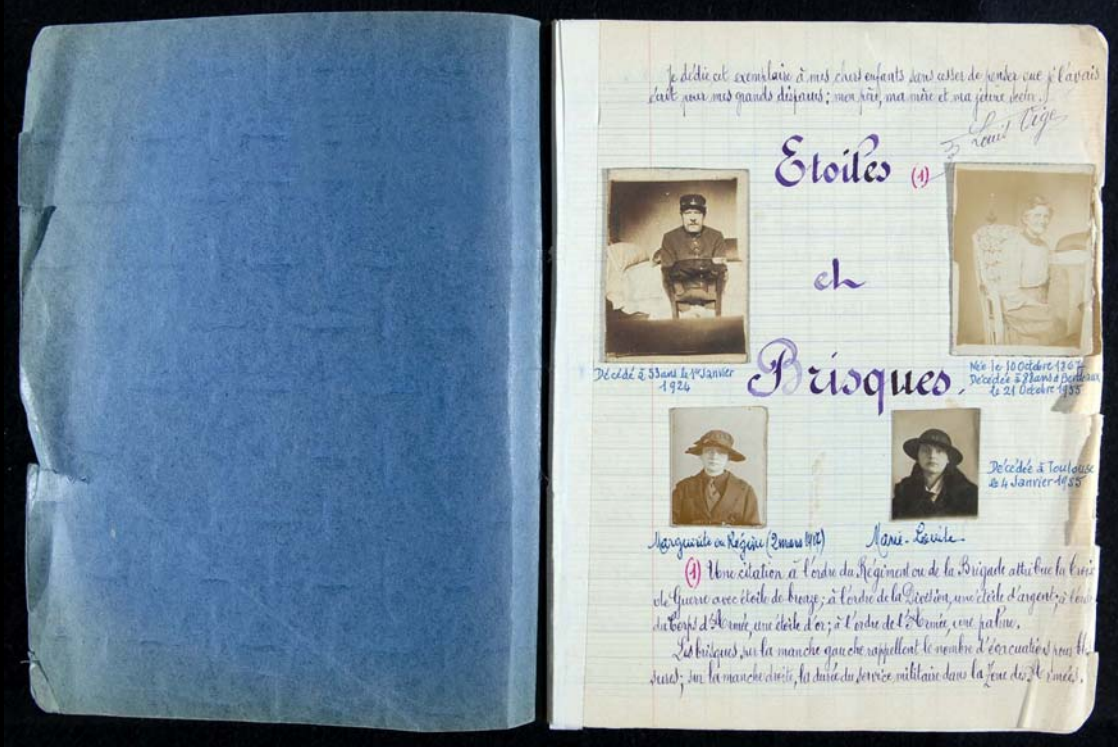 Je dédie cet exemplaire à mes chers enfants sans cesser de penser que je l'avais
écrit pour mes grands disparus; mon père, ma mère et ma jeune soeur.
Louis Vige
Etoiles (1)
et
Brisques.
Décédé à 53 ans le 1er Janvier
1924
Née le 10 Octobre 1867
Décédée à 88 ans à Bordeaux
le 21 Octobre 1955
Décédée à Toulouse
le 4 Janvier 1955
Marguerite ou Régine (2 mars 1917)
Marie-
(1) Une citation à l'ordre du Régiment ou de la Brigade attribue la Croix
de Guerre avec étoile de bronze; à l'ordre de la Division, une étoile d'argent; à l'ordre
du Corps d'Armée, une étoile d'or; à l'ordre de l'Armée, une palme.
Les brisques, sur la manche gauche rappellent le nombre d'évacuations pour bles
sures; sur la manche droite, la durée du service militaire dans la Zone des Armées.